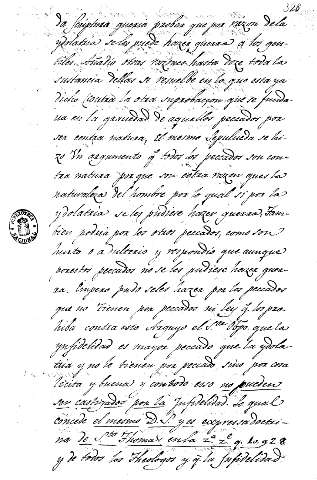 da scriptura queria probar que por razon de la
ydolatria se les puede hazer guerra a los gen
tiles. Añadio otras razones hasta doze toda la
sustancia dellas se resuelbe en lo que esta ya
dicho contra la otra suprobacion que se funda
va en la gravedad de aquellos pecados por
ser contra natura, el mesmo Sepulveda se hi
zo Un argumento q todos los pecados son con
tra natura porque son contra razon que es la
naturaleza del hombre por lo qual si por la
ydolatria se les pudiese hazer guerra, Tam
bien podria por los otros pecados, como son
hurto o adulterio y respondio que aunque
por estos pecados no se les pudiese hazer gue
rra. Empero puedeseles hazer por los pecados
que no tienen por pecados ni ley q los pro
hiba contra esto Arguyo el S.or Obpo. que la
ynfidelidad es mayor peccado que la ydola
tria y no lo tienen por pecado sino por cosa
licita y buena y con todo esso no pueden
ser castigados por la ynfidelidad. Lo qual
concede el mesmo D. S. y es expresa doctri
na de S.to Thomas en la 2.a 2.e q. 10. 9 2 8
y de todos los Theologos y q la ynfidelidad